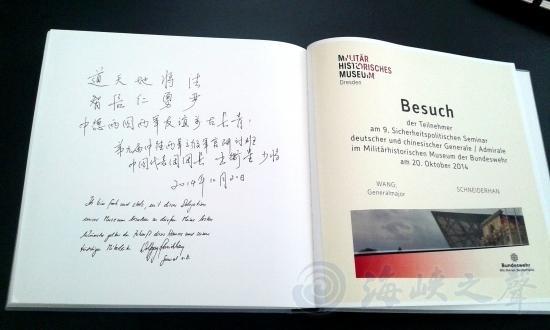 道天地将法
智信仁勇严
中德两国两军友谊万古长青!
第九届中德两军高级军官研讨班
中国代表团团长 王卫星 少将
2014年10月20日
Ich bin froh und stolz, mit dieser Delegation
unser Museum besuchen zu dürfen. Meine besten
Wünsche gelten der Zukunft dieses Hauses und seiner
Wolfgang Schneiderhan
General a.D.
MILITÄR
HISTORISCHES
MUSEUM
Dresden
Besuch
der Teilnehmer
am 9. Sicherheitspolitischen Seminar
deutscher und chinesischer Generale / Admirale
im Militärhistorischen Museum der Bundeswehr
am 20. Oktober 2014
WANG, SCHNEIDERHAN
Generalmajor
Bundeswehr
Wir. Dienen. Deutschland.
海峡之声